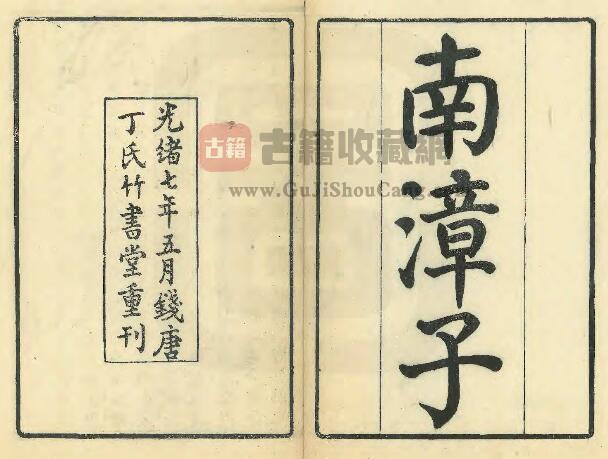 南漳子
光緒七年五月錢唐
丁氏竹書堂重刊
古籍
古籍收藏網
www.GuJiShouCang.com